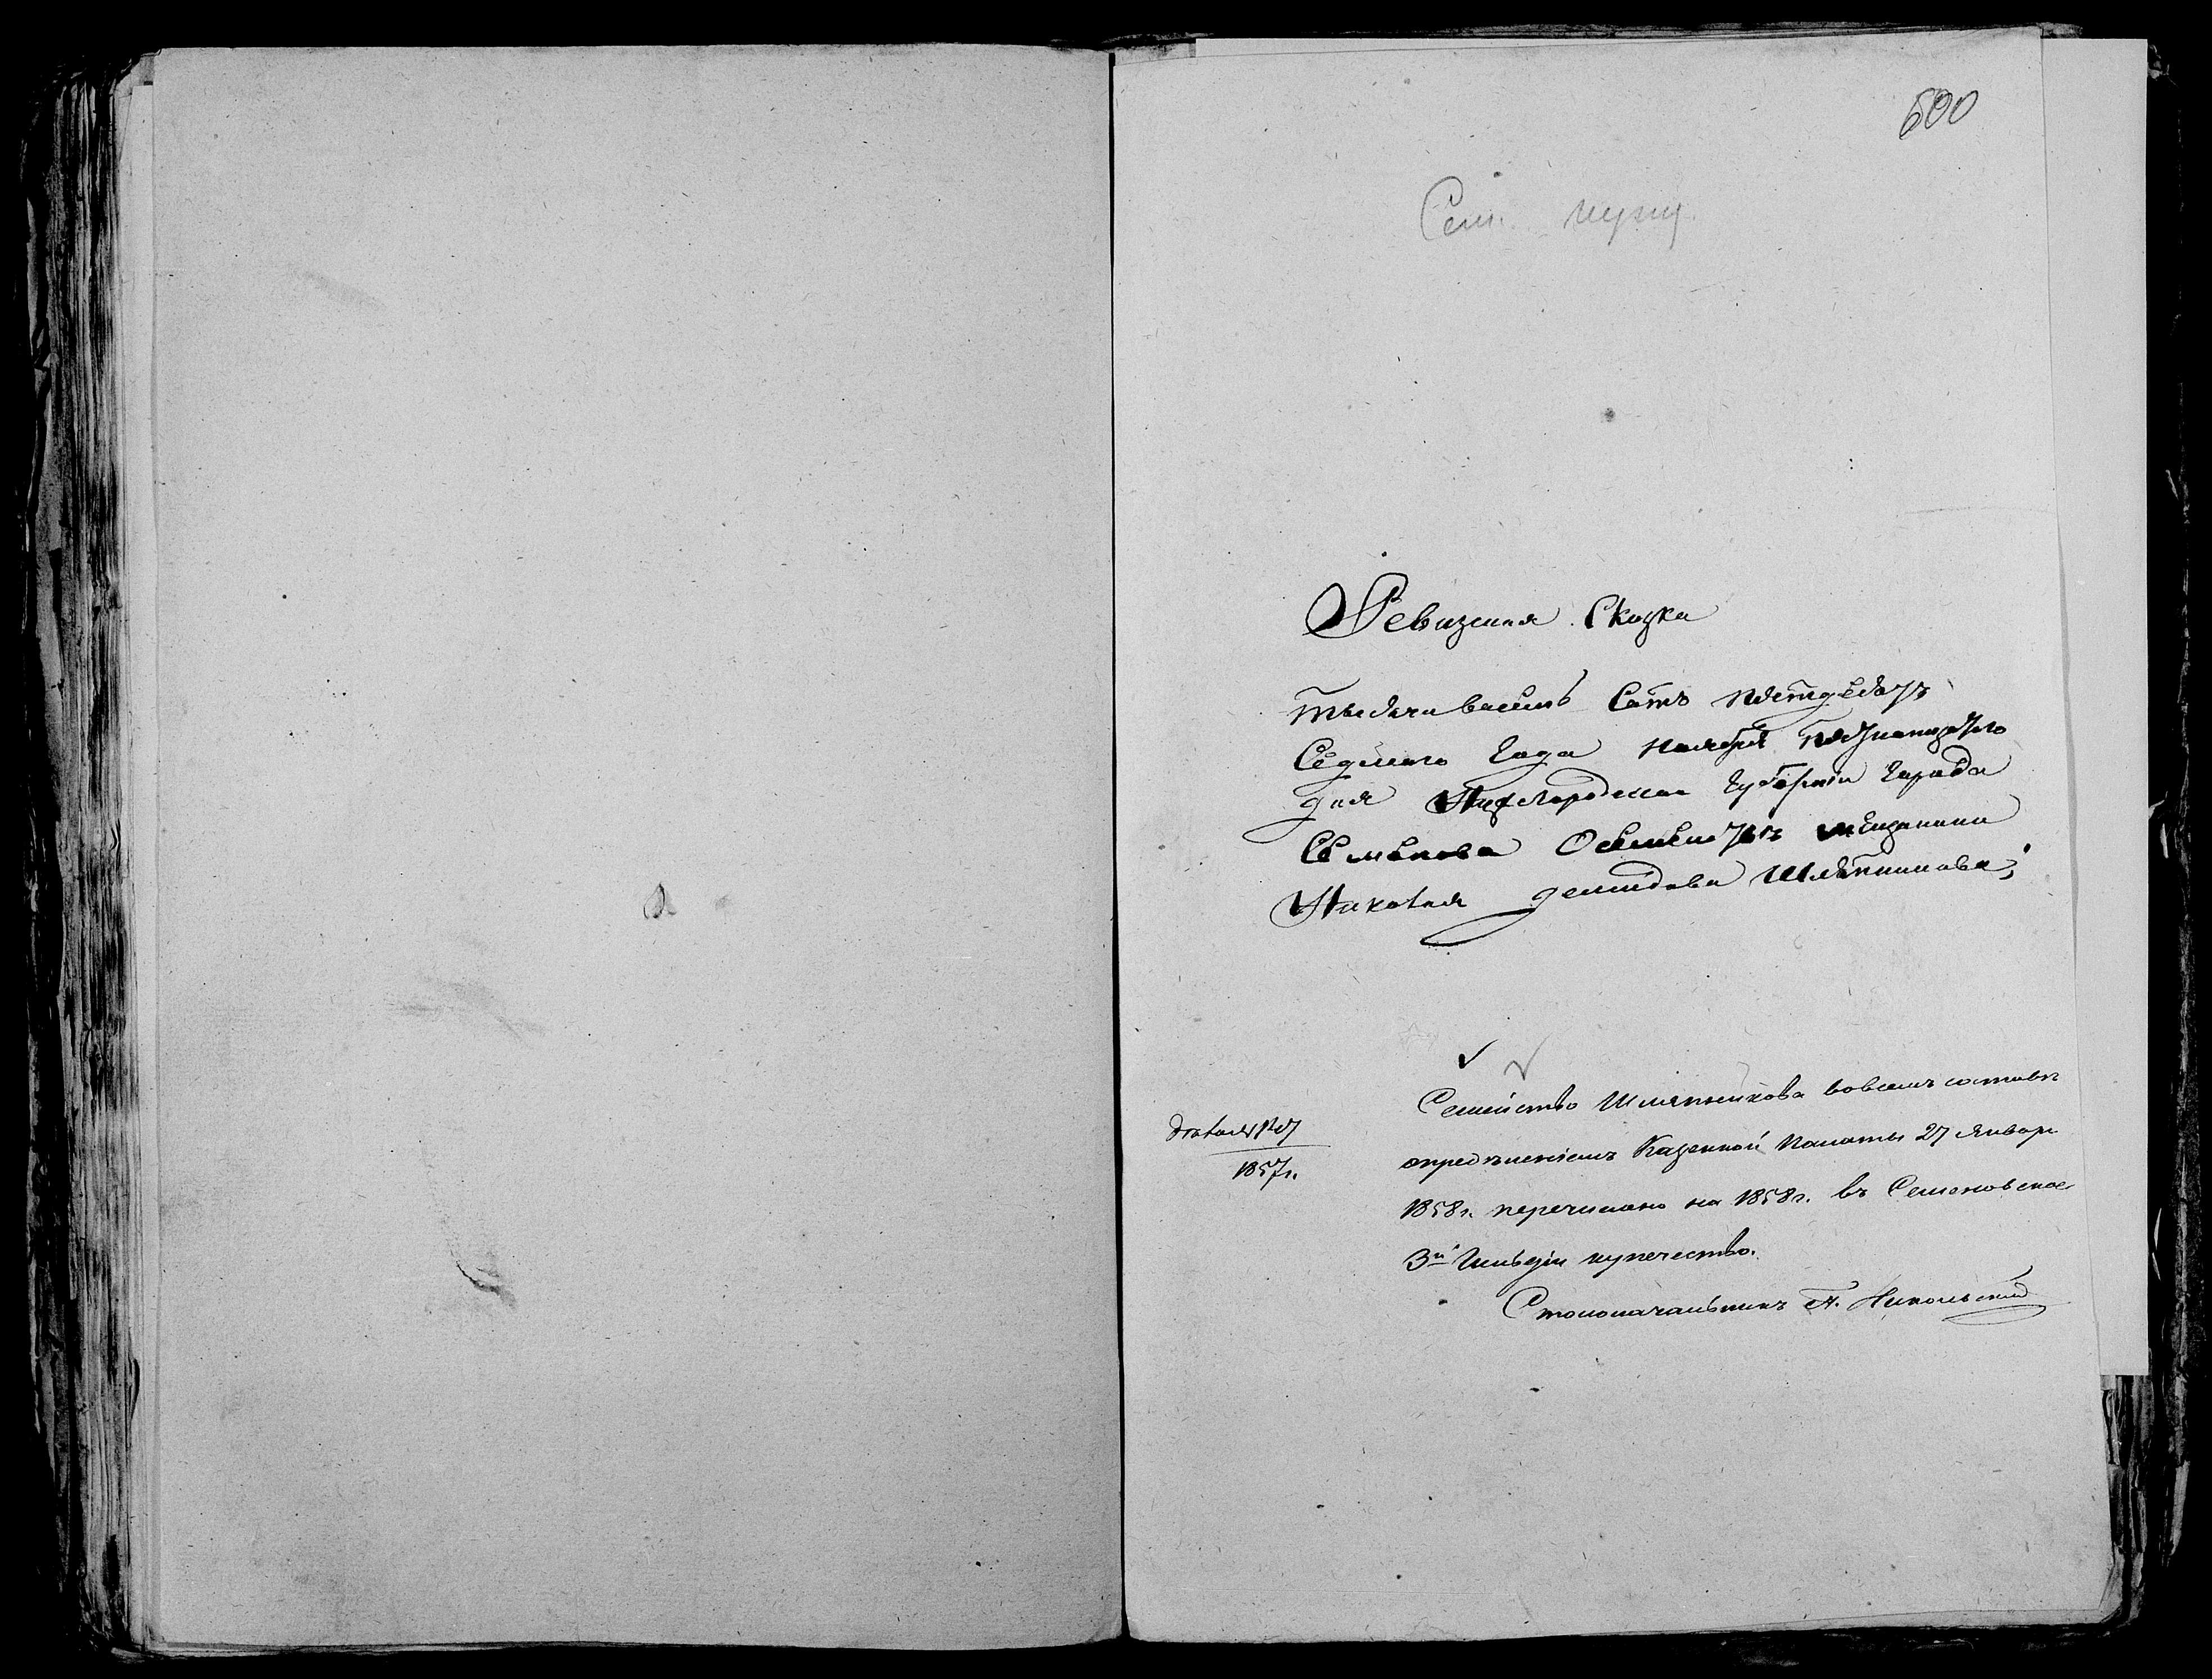 600
Сем. купц.
Ревизская Сказка
тысяча восемь Сотъ пятдесятъ
Седьмого Года ноября пятнатцатого
дня Нижегородской Губернiи Города
Семенова О мещанина
Николая демидова Шляпникова;
Семейство Шляпникова вовсемъ составѣ
Дѣло №
1857 г.
опредѣленiемъ Казенной Палаты 27 Январ
1858 г. перечислено на 1858 г. въ Семеновское
3й Гильдiи купечество.
Столоначальникъ А. Никольский